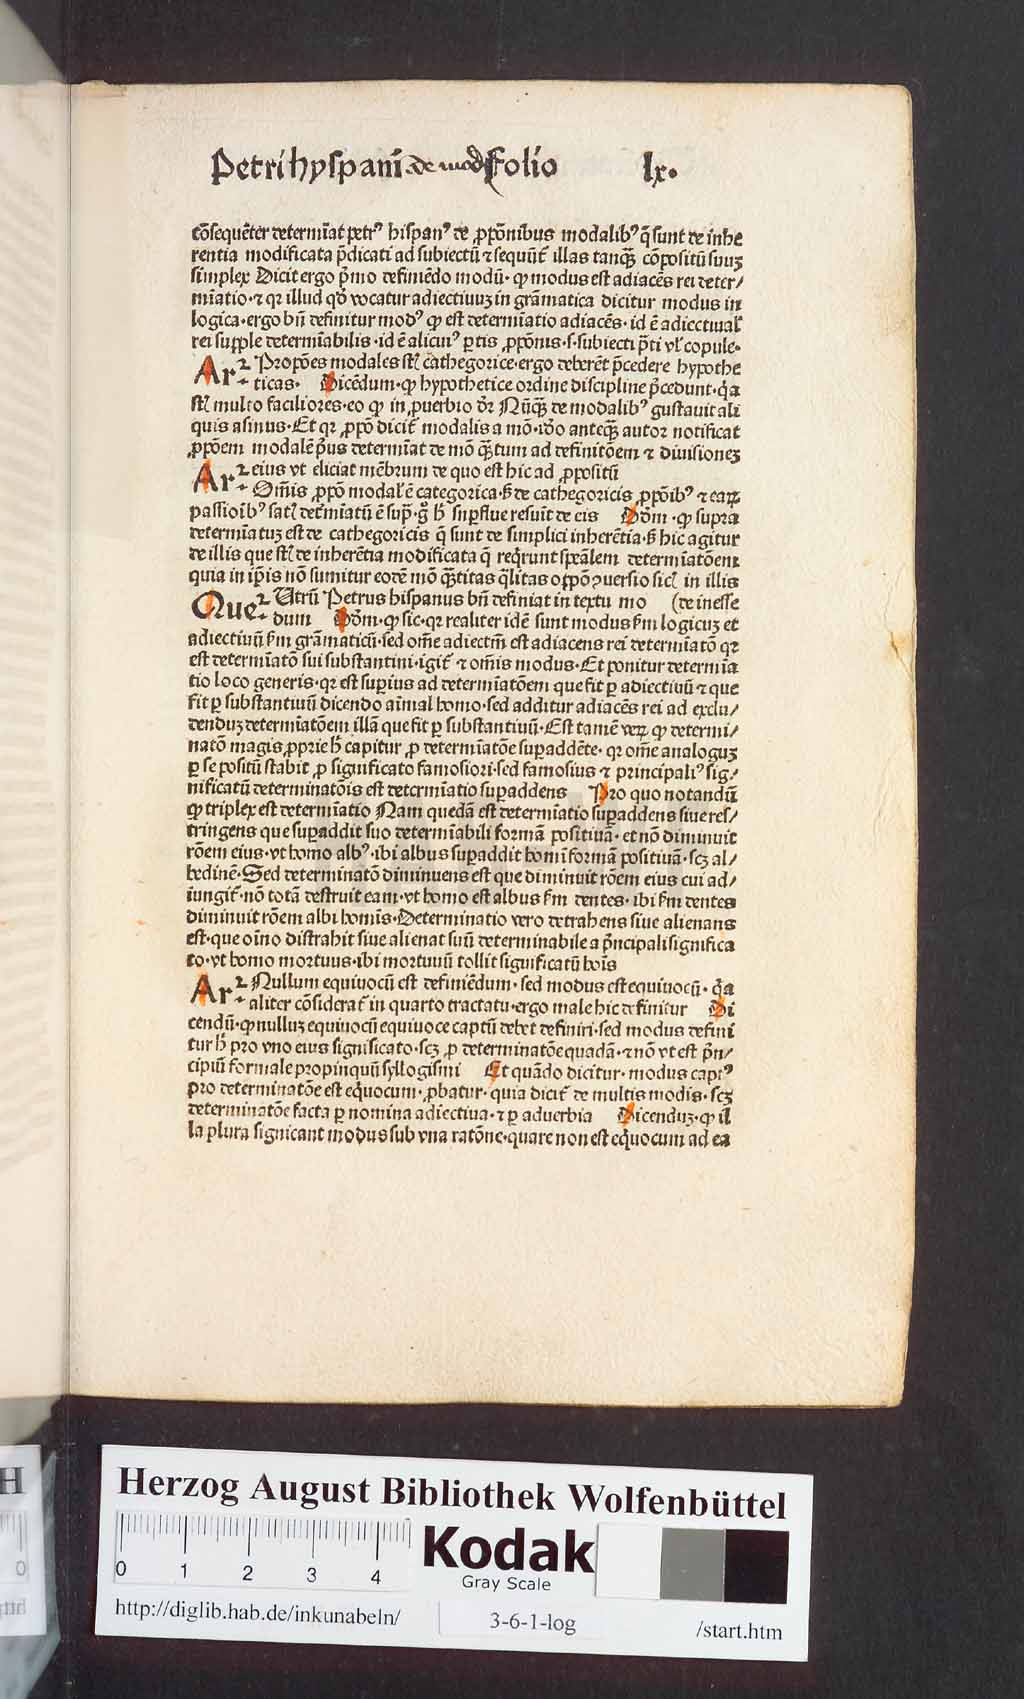 Petri hyspani de mod Folio lx.
cōsequēter determīat petrꝰ hispanꝰ de ꝓpōnibus modalibꝰ q̄ sunt de inhe
rentia modificata p̄dicati ad subiectū ⁊ sequūt᷑ illas tanqꝫ cōpositū suuꝫ
simplex Dicit ergo p̄mo definiēdo modū· ꝙ modus est adiacēs rei deter/
mīatio·⁊ qꝛ illud qḋ vocatur adiectiuuꝫ in grāmatica dicitur modus in
logica·ergo bn̄ definitur modꝰ ꝙ est determīatio adiacēs· id ē adiectiual'
rei supple determīabilis ·id ē alicuiꝰ ꝑtis ꝓpōnis·s·subiecti p̄ti vl' copule·
Arꝛ· Propōes modales st' cathegorice·ergo deberēt p̄cedere hypothe
ticas· Dicēdum·ꝙ hypothetice ordine discipline p̄cedunt·q̄a
st' multo faciliores·eo ꝙ in ꝓuerbio dꝛ Nūqꝫ de modalibꝰ gustauit ali
quis asinus·Et qꝛ ꝓpō dicit᷑ modalis a mō·iḋo anteqꝫ autor notificat
ꝓpōem modalē p̄us determīat de mō qꝫtum ad definitōem ⁊ diuisioneꝫ
Arꝛ· eius vt eliciat mēbrum de quo est hic ad ꝓpositū
Om̄is ꝓpō modal' ē categorica·sꝫ de cathegoricis ꝓpōibꝰ ⁊ eaꝝ
passioībꝰ sat' det'mīatū ē sup̄·g° h' supꝑflue resuīt de eis Dōm ·ꝙ supra
determīatuꝫ est de cathegoricis q̄ sunt de simplici inherētia·sꝫ hic agitur
de illis que st' de inherētia modificata q̄ req̄runt spēalem determīatōem
quia in ip̄is nō sumitur eodē mō qꝫtitas q̄litas oppō ⁊ ꝯuersio sic' in illis
Queꝛ· Utrū Petrus hispanus bn̄ definiat in textu mo (de inesse
dum Dōm·ꝙ sic·qꝛ realiter idē sunt modus sm̄ logicuꝫ et
adiectiuū sm̄ grāmaticū·sed om̄e adiectm̄ est adiacens rei determīatō qꝛ
est determīatō sui substantiui·igit᷑ ⁊ om̄is modus·Et ponitur determīa
tio loco generis·qꝛ est supꝑius ad determīatōem que fit ꝑ adiectiuū ⁊ que
fit ꝑ substantiuū dicendo aīmal homo·sed additur adiacēs rei ad exclu/
denduꝫ determīatōem illā que fit ꝑ substantiuū·Est tamē veꝝ ꝙ determi/
natō magis ꝓprie h' capitur ꝓ determīatōe supꝑaddēte· qꝛ om̄e analoguꝫ
ꝑ se positū stabit ꝓ significato famosiori·sed famosius ⁊ principaliꝰ sig/
nificatū determinatōis est determīatio supꝑaddens Pro quo notandū
ꝙ triplex est determīatio Nam quedā est determīatio supꝑaddens siue res/
tringens que supꝑaddit suo determīabili formā positiuā· et nō diminuit
rōem eius·vt homo albꝰ·ibi albus supꝑaddit homī formā positiuā·scꝫ al/
bedinē·Sed determinatō diminuens est que diminuit rōem eius cui ad/
iungit᷑·nō totā destruit eam·vt homo est albus sm̄ dentes· ibi sm̄ dentes
diminuit rōem albi homīs·Determinatio vero detrahens siue alienans
est·que oīno distrahit siue alienat suū determinabile a p̄ncipali significa
to·vt homo mortuus·ibi mortuuū tollit significatū hoīs
Arꝛ· Nullum equiuocū est definiēdum· sed modus est equiuocū· q̄a
aliter cōsiderat᷑ in quarto tractatu·ergo male hic definitur Di
cendū·ꝙ nulluꝫ equiuocū equiuoce captū debet definiri·sed modus defini
tur h' pro vno eius significato·scꝫ ꝓ determinatōe quadā·⁊ nō vt est p̄n/
cipiū formale propinquū syllogismi Et quādo dicitur· modus captꝰ
pro determinatōe est eq̄uocum·ꝓbatur· quia dicit᷑ de multis modis·scꝫ
determinatōe facta ꝑ nomina adiectiua·⁊ ꝑ aduerbia Dicenduꝫ·ꝙ il
la plura signicant modus sub vna ratōne·quare non est eq̄uocum ad ea
Herzog August Bibliothek Wolfenbüttel
0 1 2 3 4
Kodak
Gray Scale
http://diglib.hab.de/inkunabeln/ 3-6-1-log /start.htm